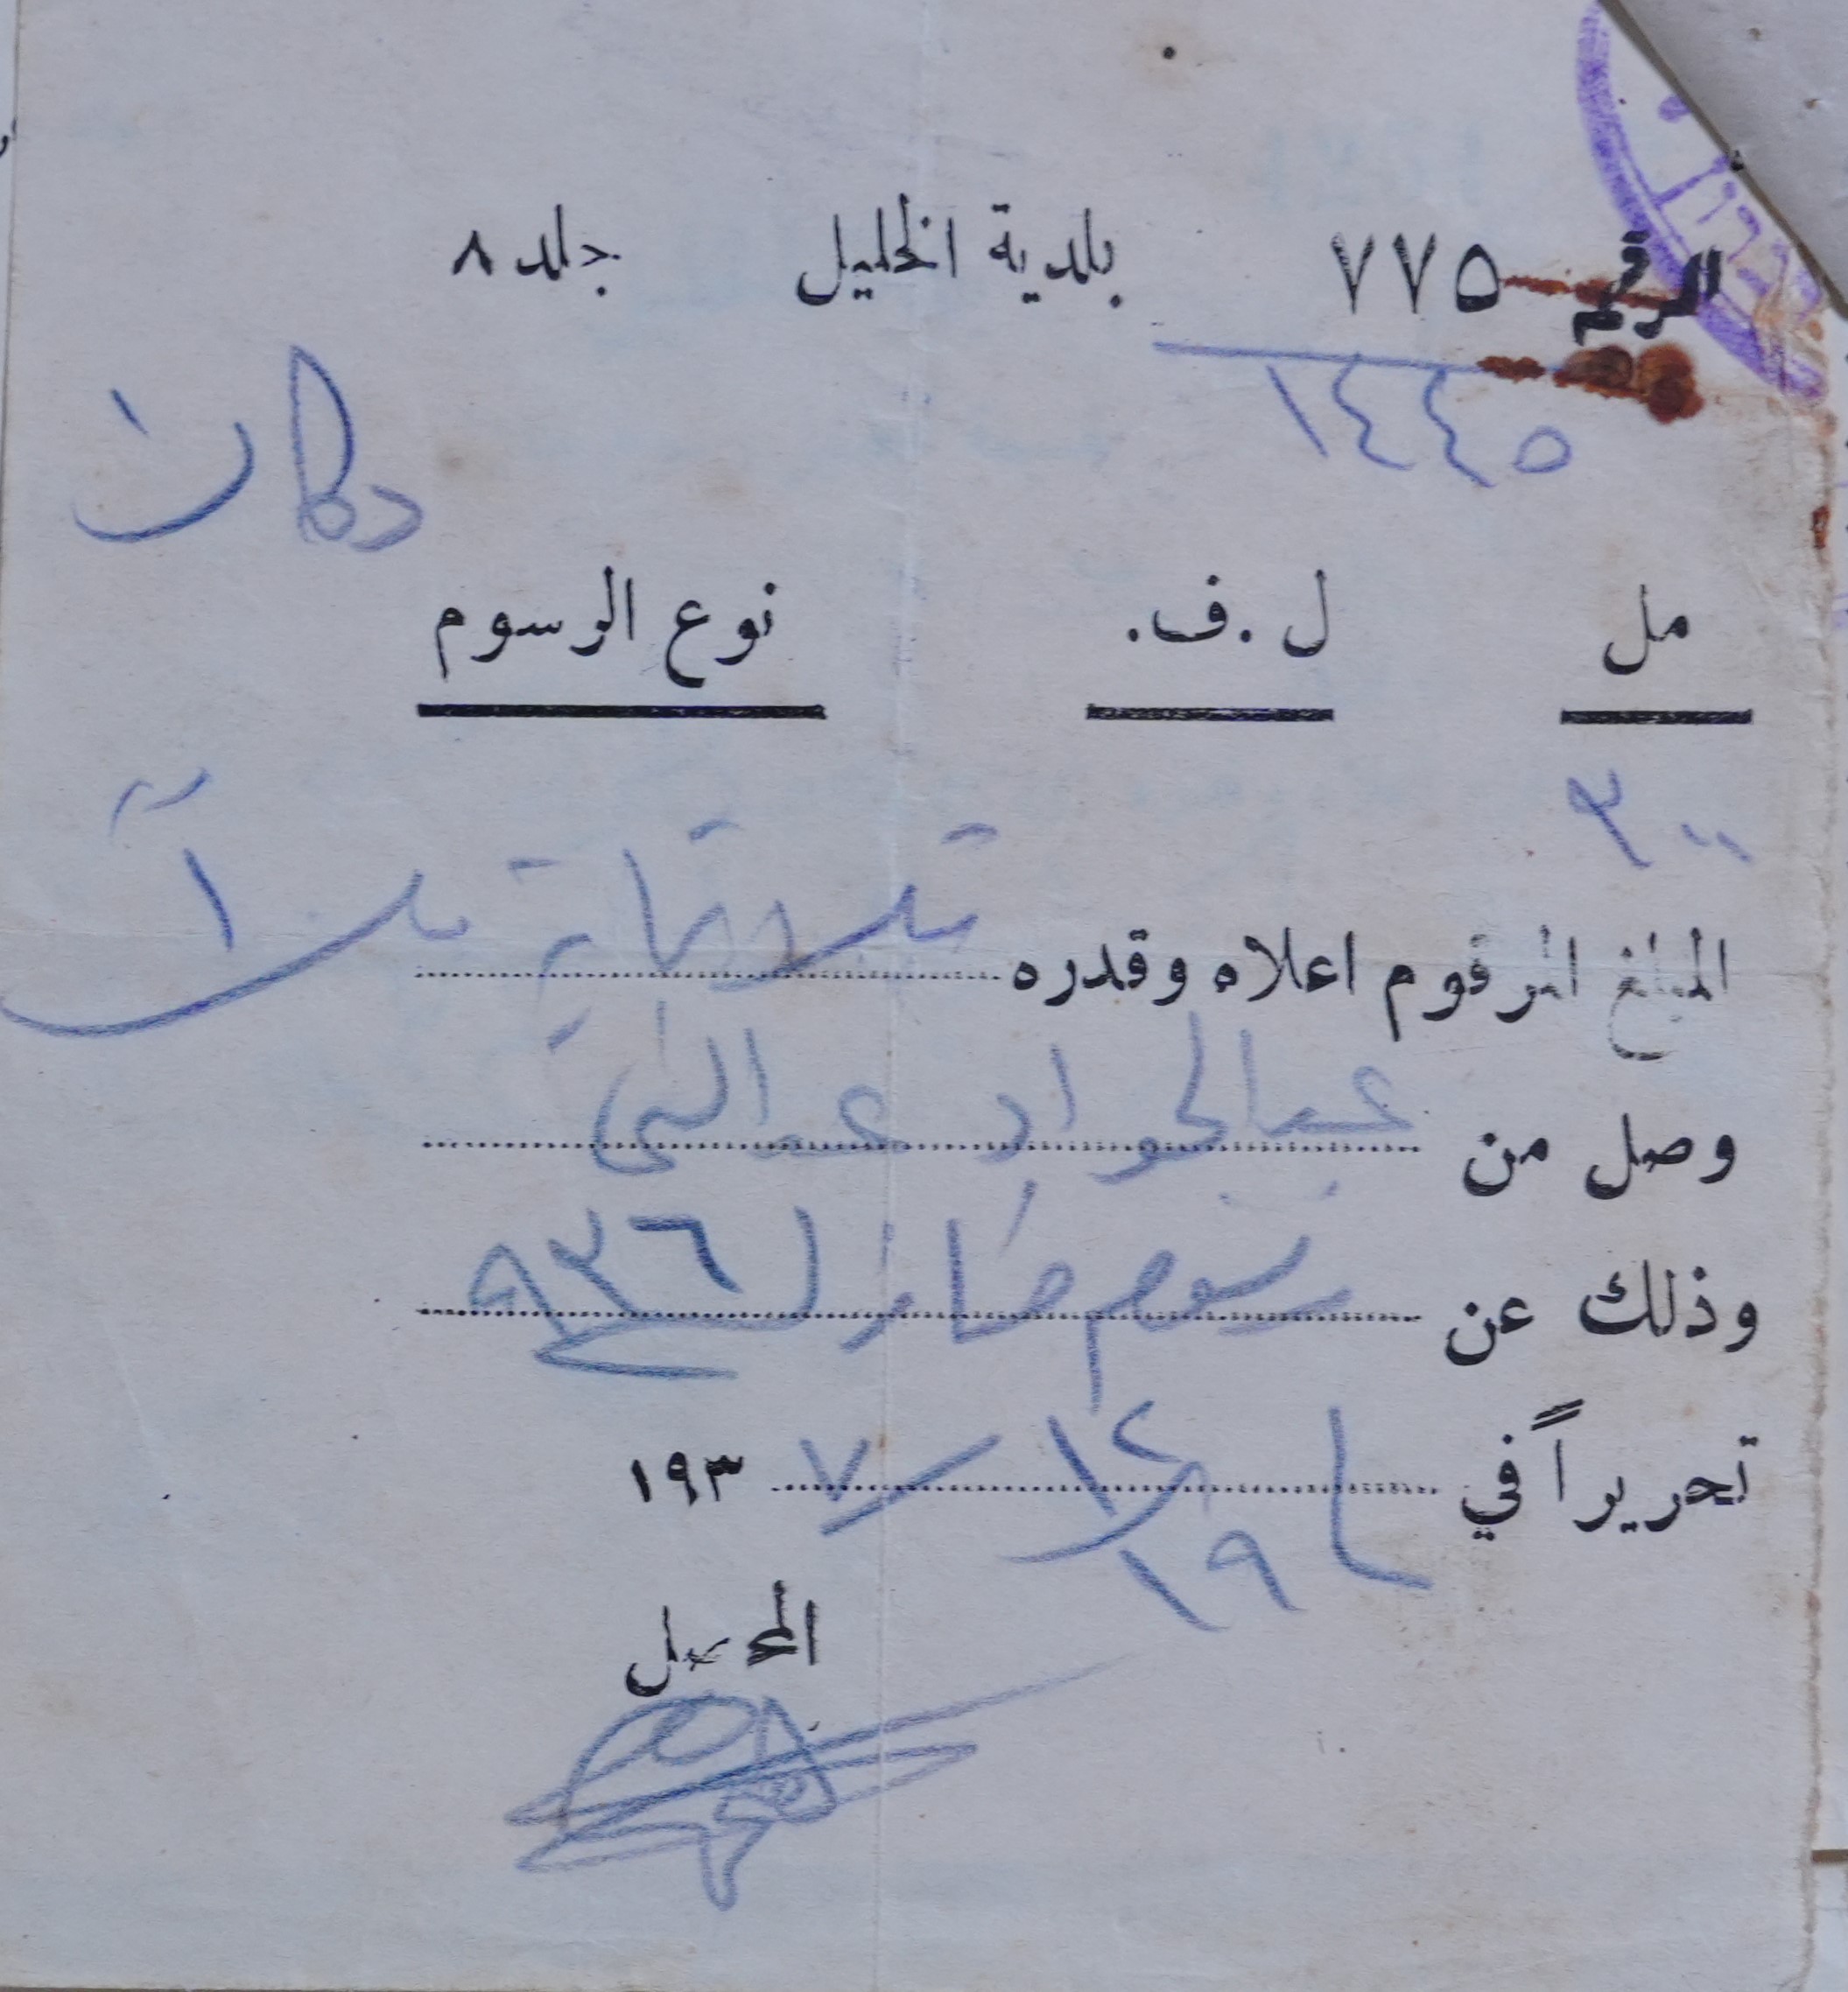 الرقم ٧٧٥ بلدية الخليل جلد ٨
١٤٤٥
دكان
مل ل.ف. نوع الرسوم
٣٠٠
المبلغ المرقوم اعلاه وقدره ثلاثماية ملاً
وصل من عبد الجواد عبد النبي
وذلك عن رسوم معارف ٩٣٦
تحريراً في ١٢ ٧ ١٩٣
١٩
المحصل